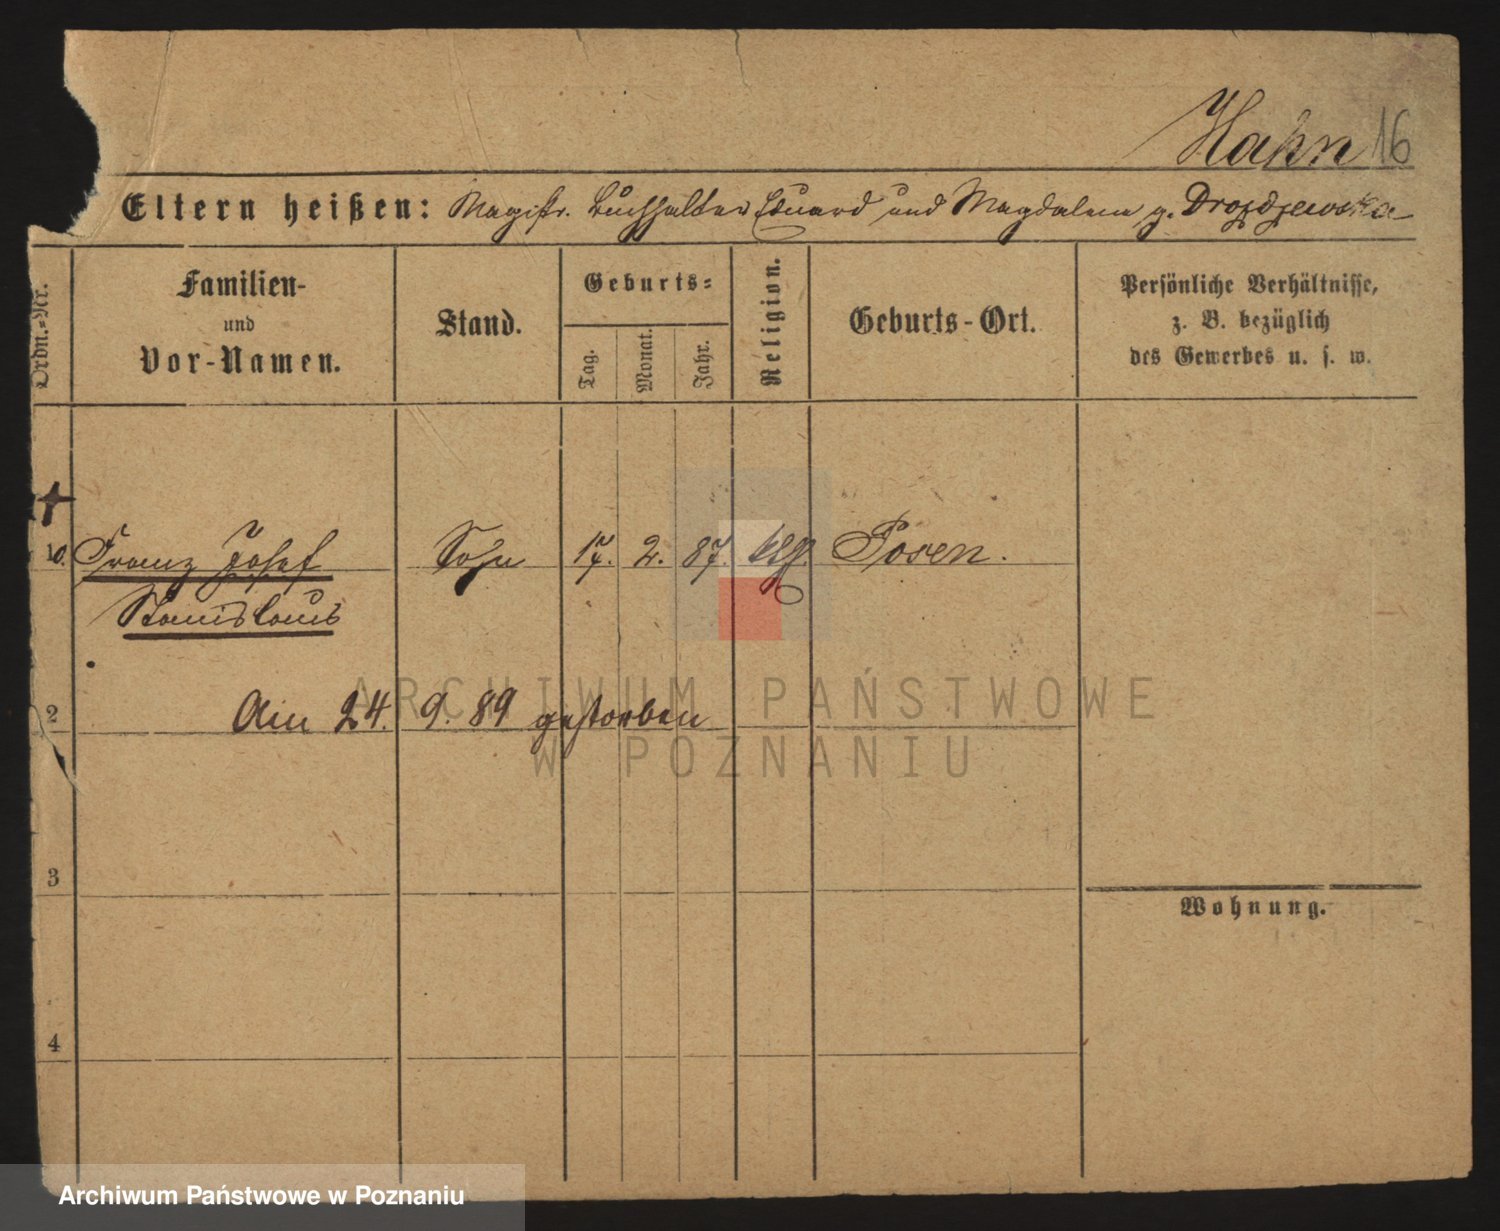 Hahn 16
Eltern heißen: Magistr. Buchhalter Eduard und Magdalena g. Drozdzewska
Ordn.-Nr.
Familien-
und
Vor-Namen.
Stand.
Geburts-
Tag.
Monat.
Jahr.
Religion.
Geburts-Ort.
Persönliche Verhältnisse,
z. B. bezüglich
des Gewerbes u. s. w.
10. Franz Josef Sohn 17. 2. 87. kth. Posen.
Stanislaus
2
Am 24. 9. 89 gestorben
ARCHIWUM PAŃSTWOWE
W POZNANIU
3
Wohnung.
4
Archiwum Państwowe w Poznaniu